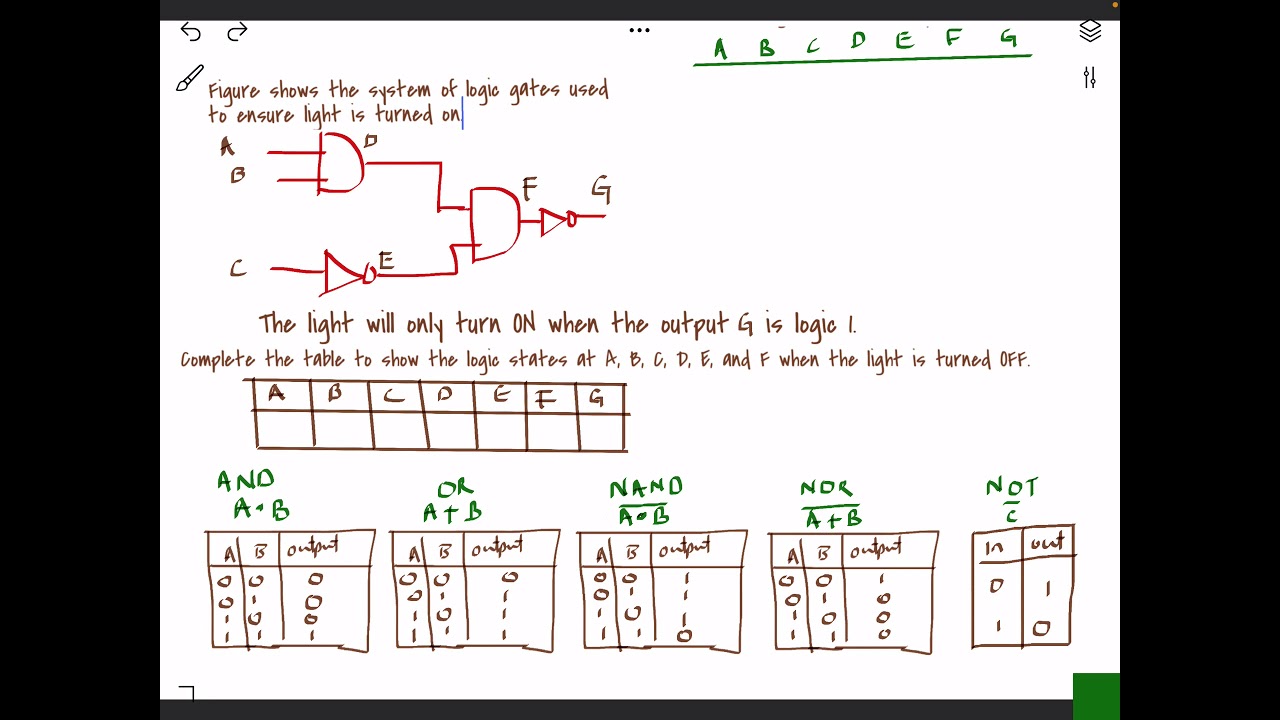 A B C D E F G
Figure shows the system of logic gates used
to ensure light is turned on
A
D
B
F
G
C
E
The light will only turn ON when the output G is logic 1.
Complete the table to show the logic states at A, B, C, D, E, and F when the light is turned OFF.
A B C D E F G
AND
A•B
A B output
0 0 0
0 1 0
1 0 0
1 1 1
OR
A+B
A B output
0 0 0
0 1 1
1 0 1
1 1 1
NAND
A̅•̅B̅
A B output
0 0 1
0 1 1
1 0 1
1 1 0
NOR
A̅+̅B̅
A B output
0 0 1
0 1 0
1 0 0
1 1 0
NOT
C̅
In out
0 1
1 0